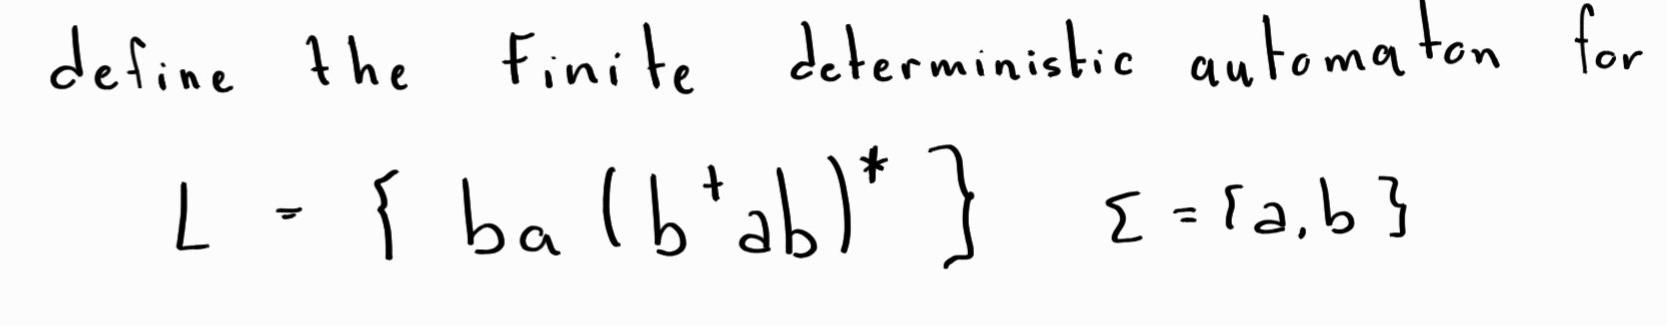 define the finite deterministic automaton for
L = { ba (b⁺ab)* } Σ = {a,b}